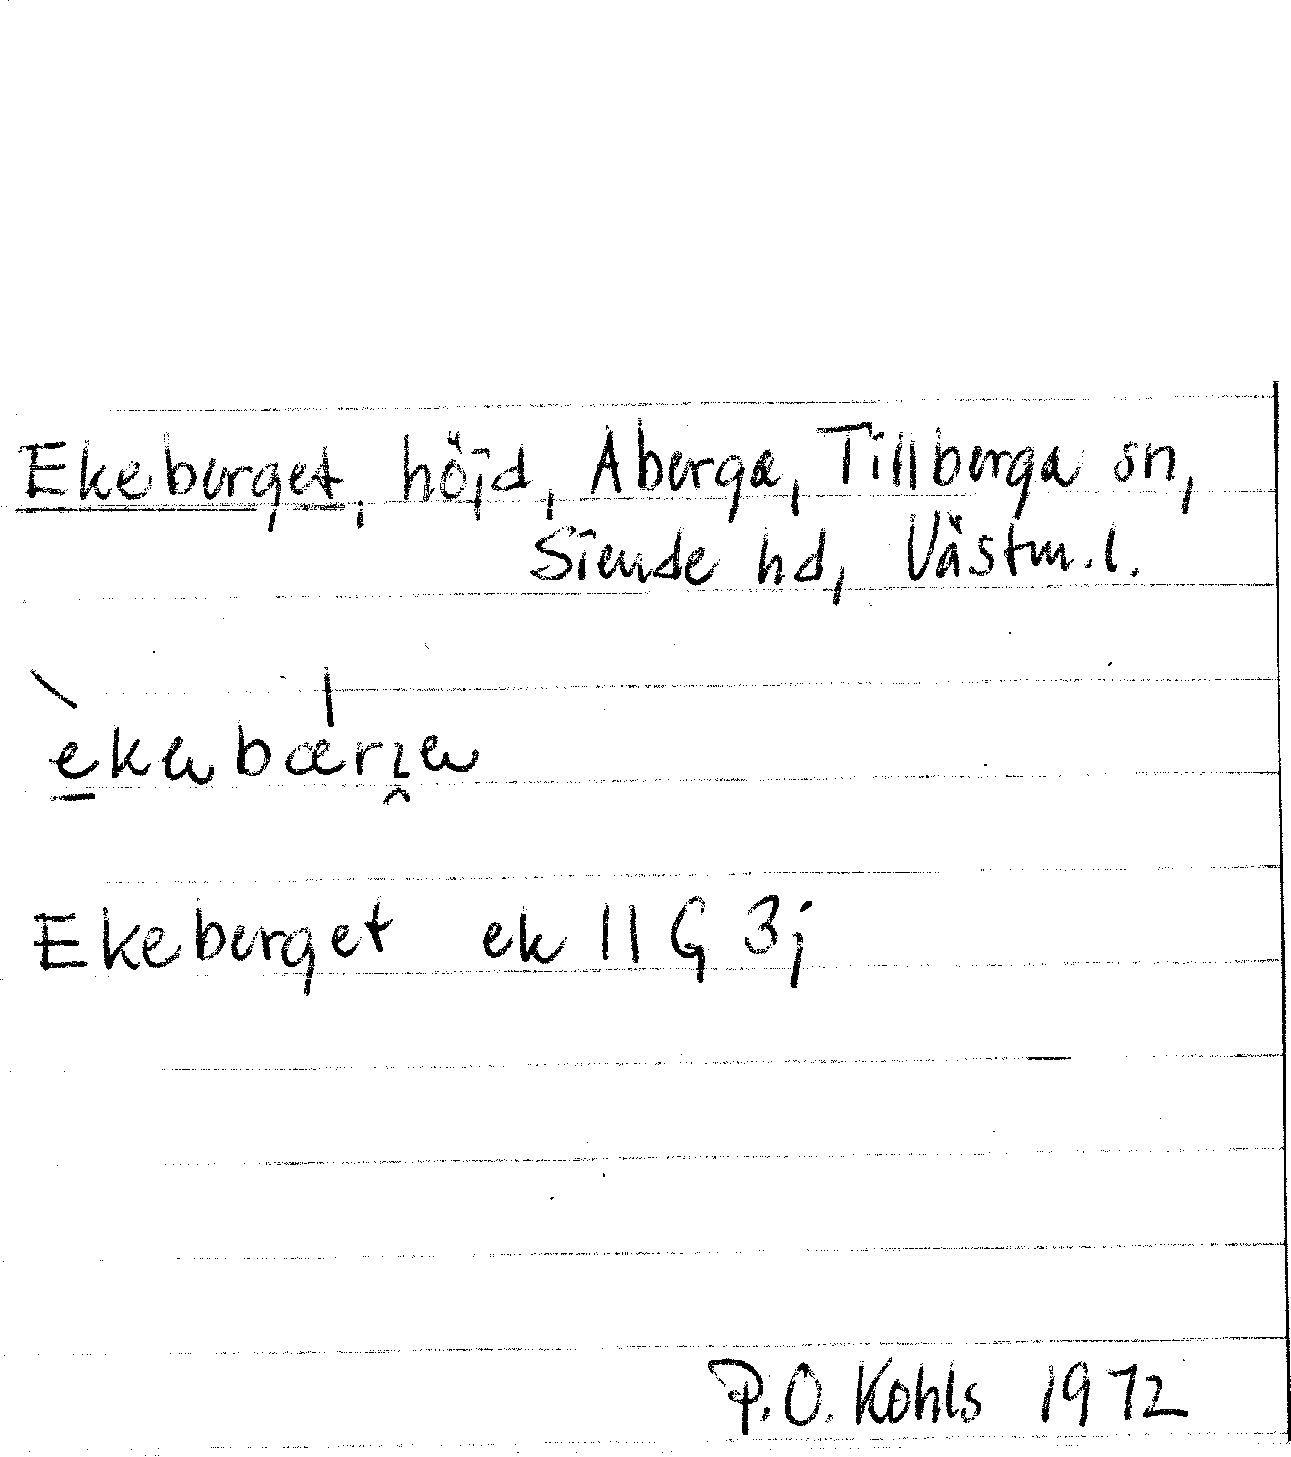 Ekeberget, höjd, Åberga, Tillberga sn,
Siende hd, Västm. l.
Ekeberget ek 11 G 3j
P.O. Kohls 1972